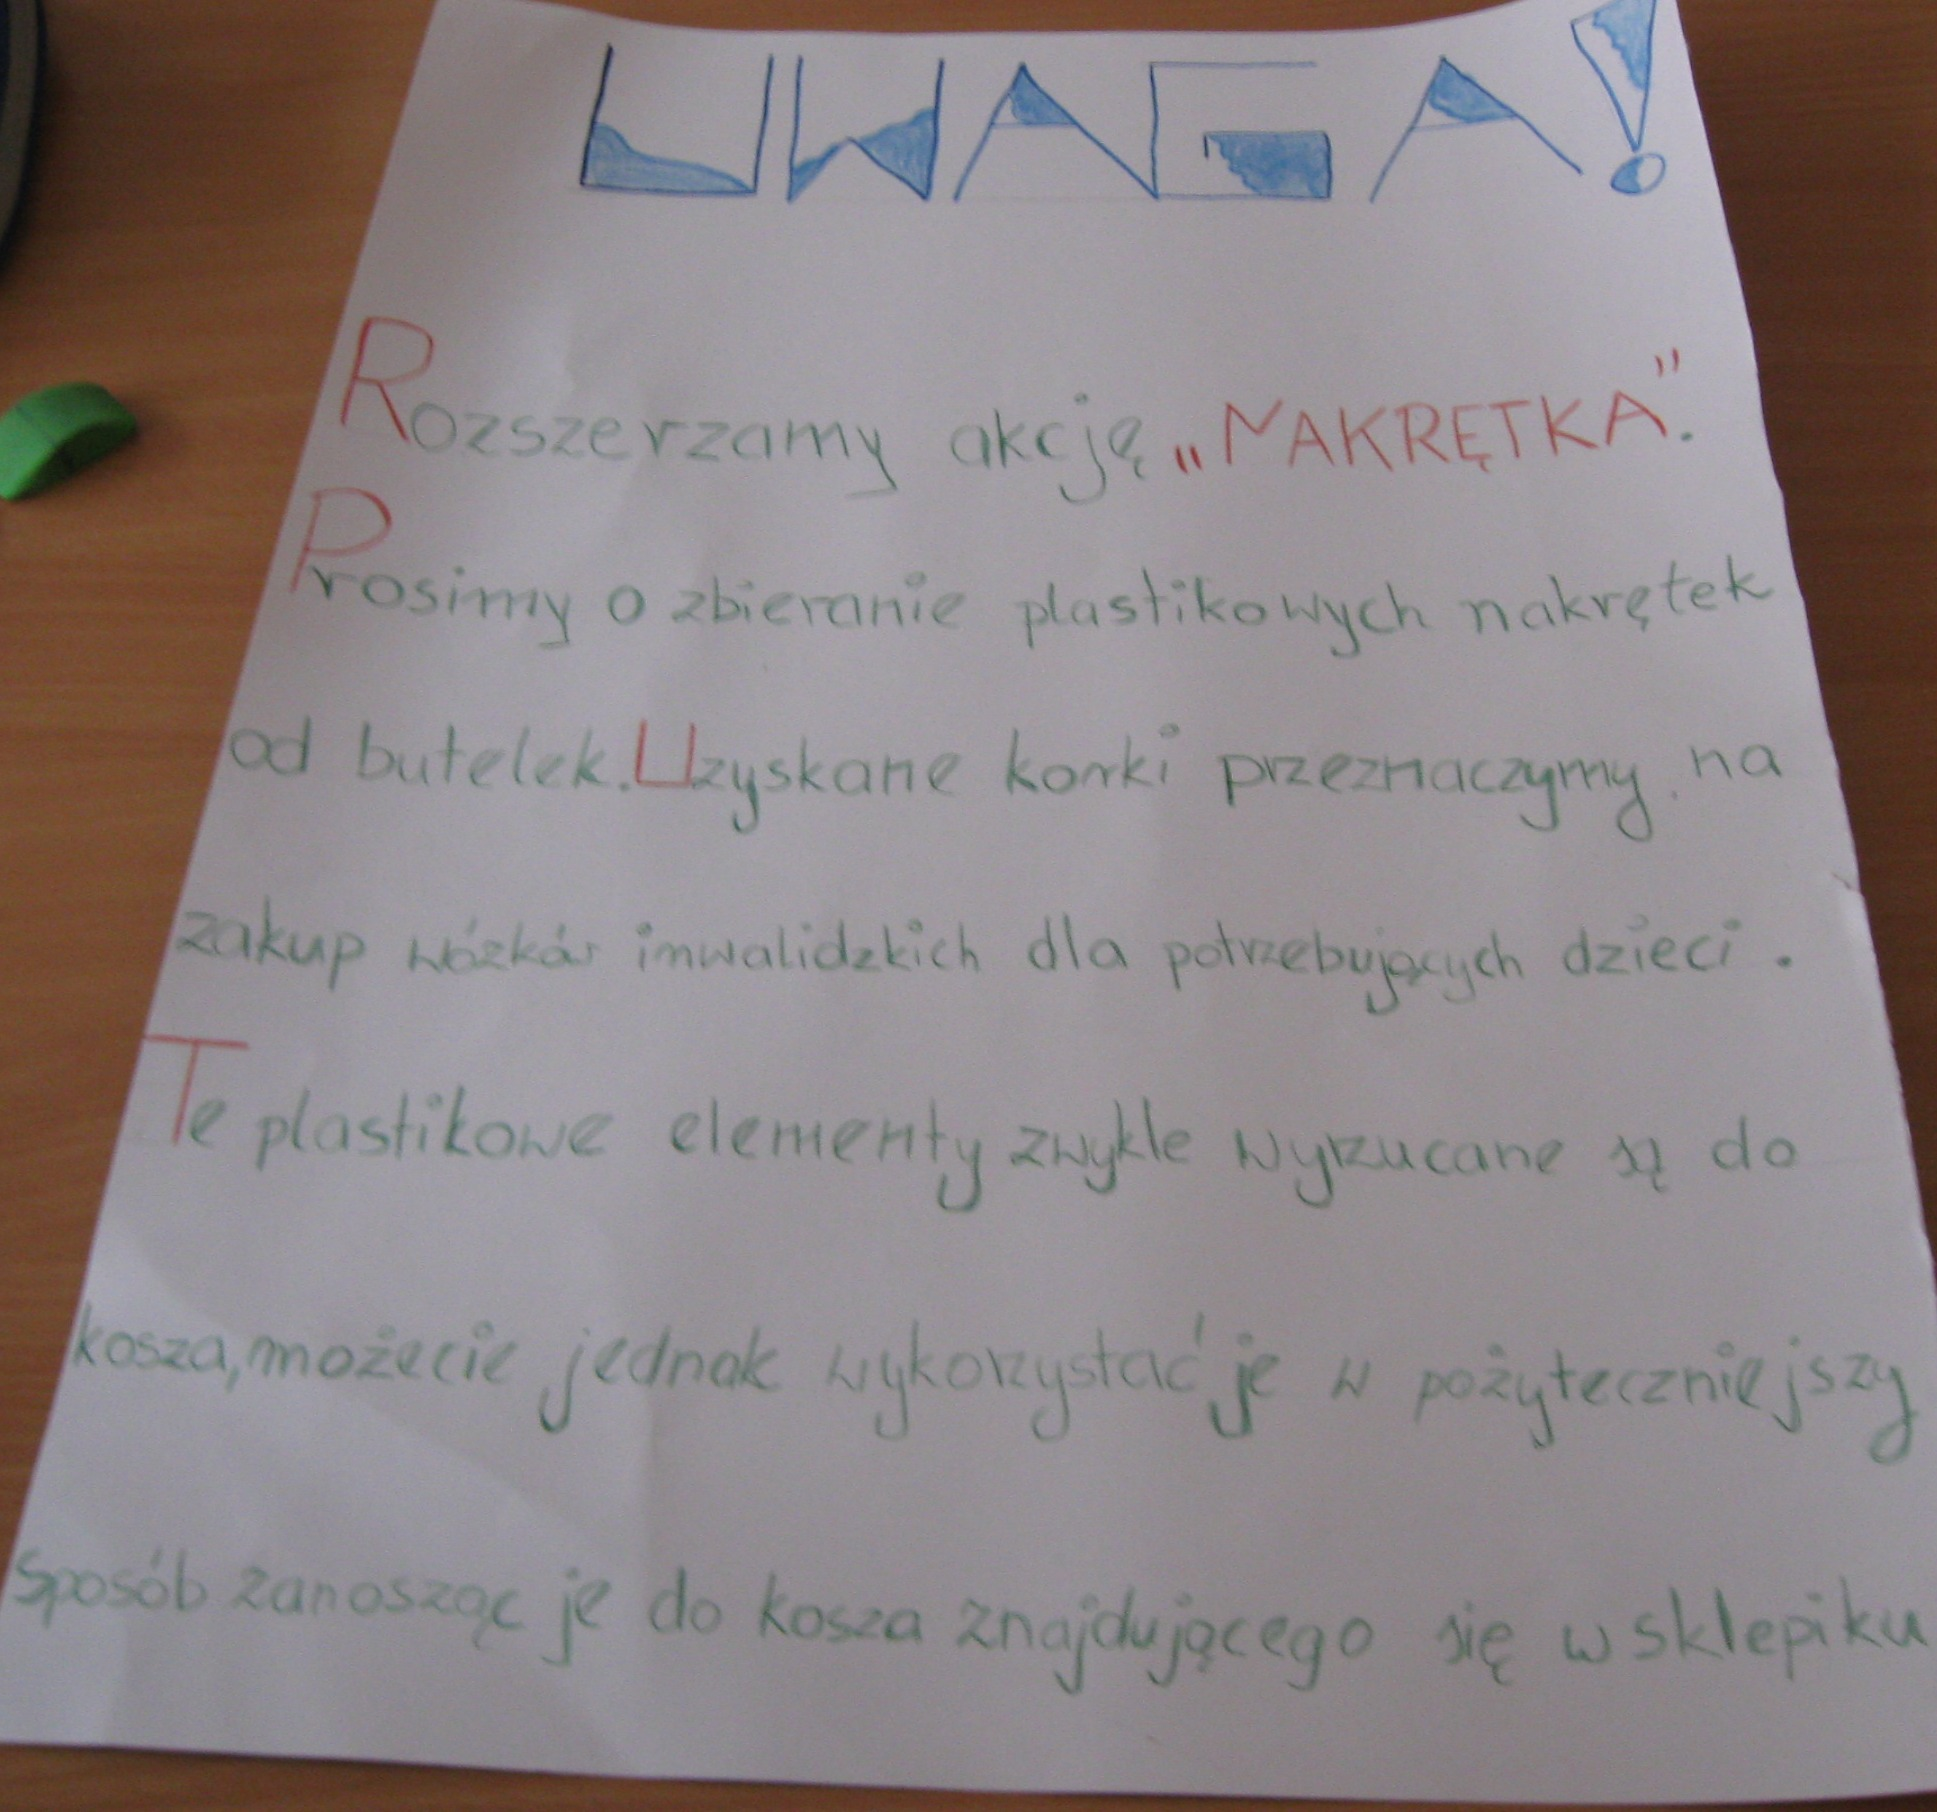 UWAGA!
Rozszerzamy akcję „NAKRĘTKA”.
Prosimy o zbieranie plastikowych nakrętek
od butelek. Uzyskane korki przeznaczymy na
zakup wózków inwalidzkich dla potrzebujących dzieci.
Te plastikowe elementy zwykle wyrzucane są do
kosza, możecie jednak wykorzystać je w pożyteczniejszy
sposób zanosząc je do kosza znajdującego się w sklepiku